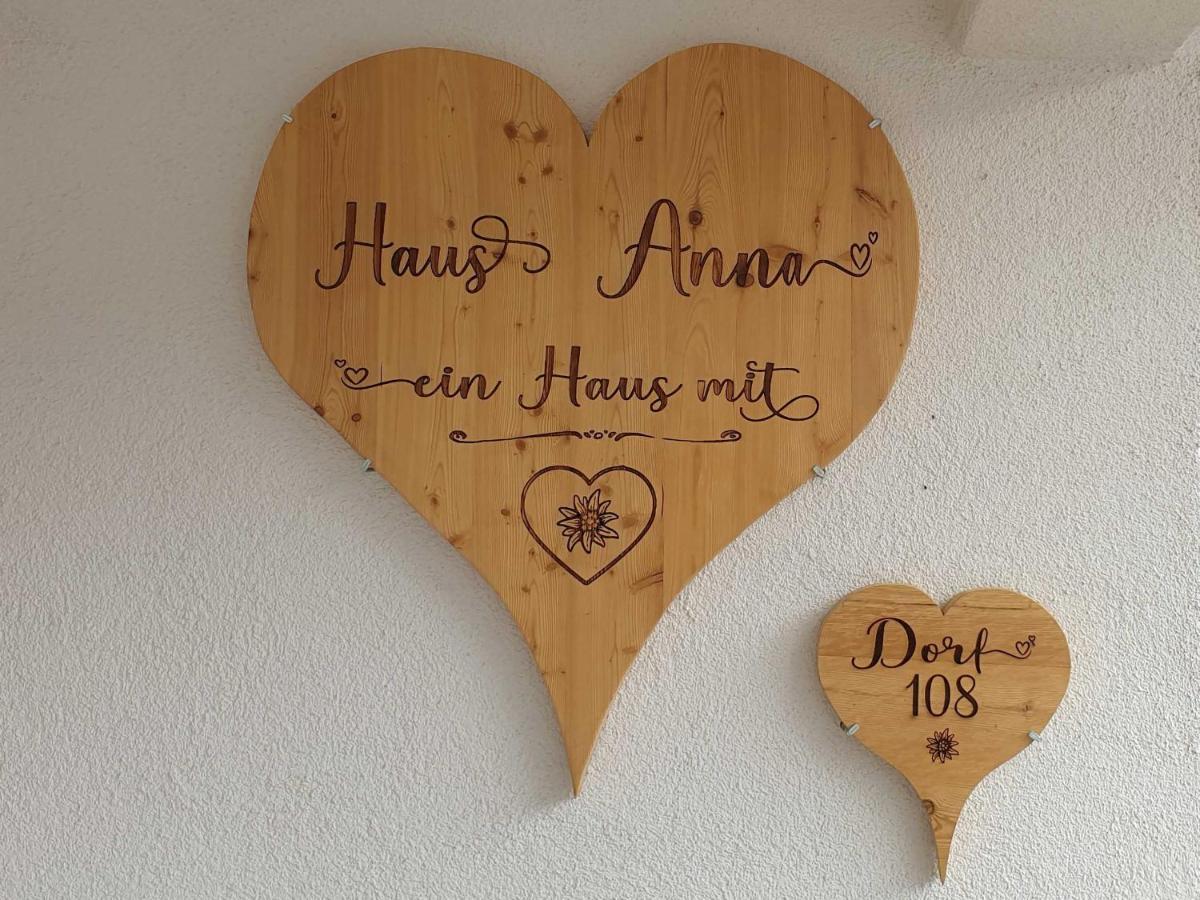 Haus Anna
ein Haus mit
Dorf
108